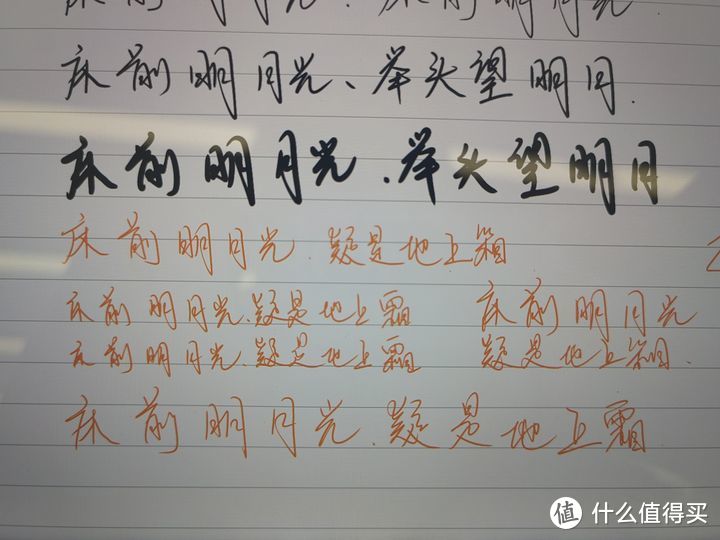 床前明月光、床前明月光.
床前明月光、举头望明月.
床前明月光、举头望明月
床前明月光.疑是地上霜
床前明月光.疑是地上霜 床前明月光
床前明月光.疑是地上霜 疑是地上霜.
床前明月光.疑是地上霜
值 什么值得买